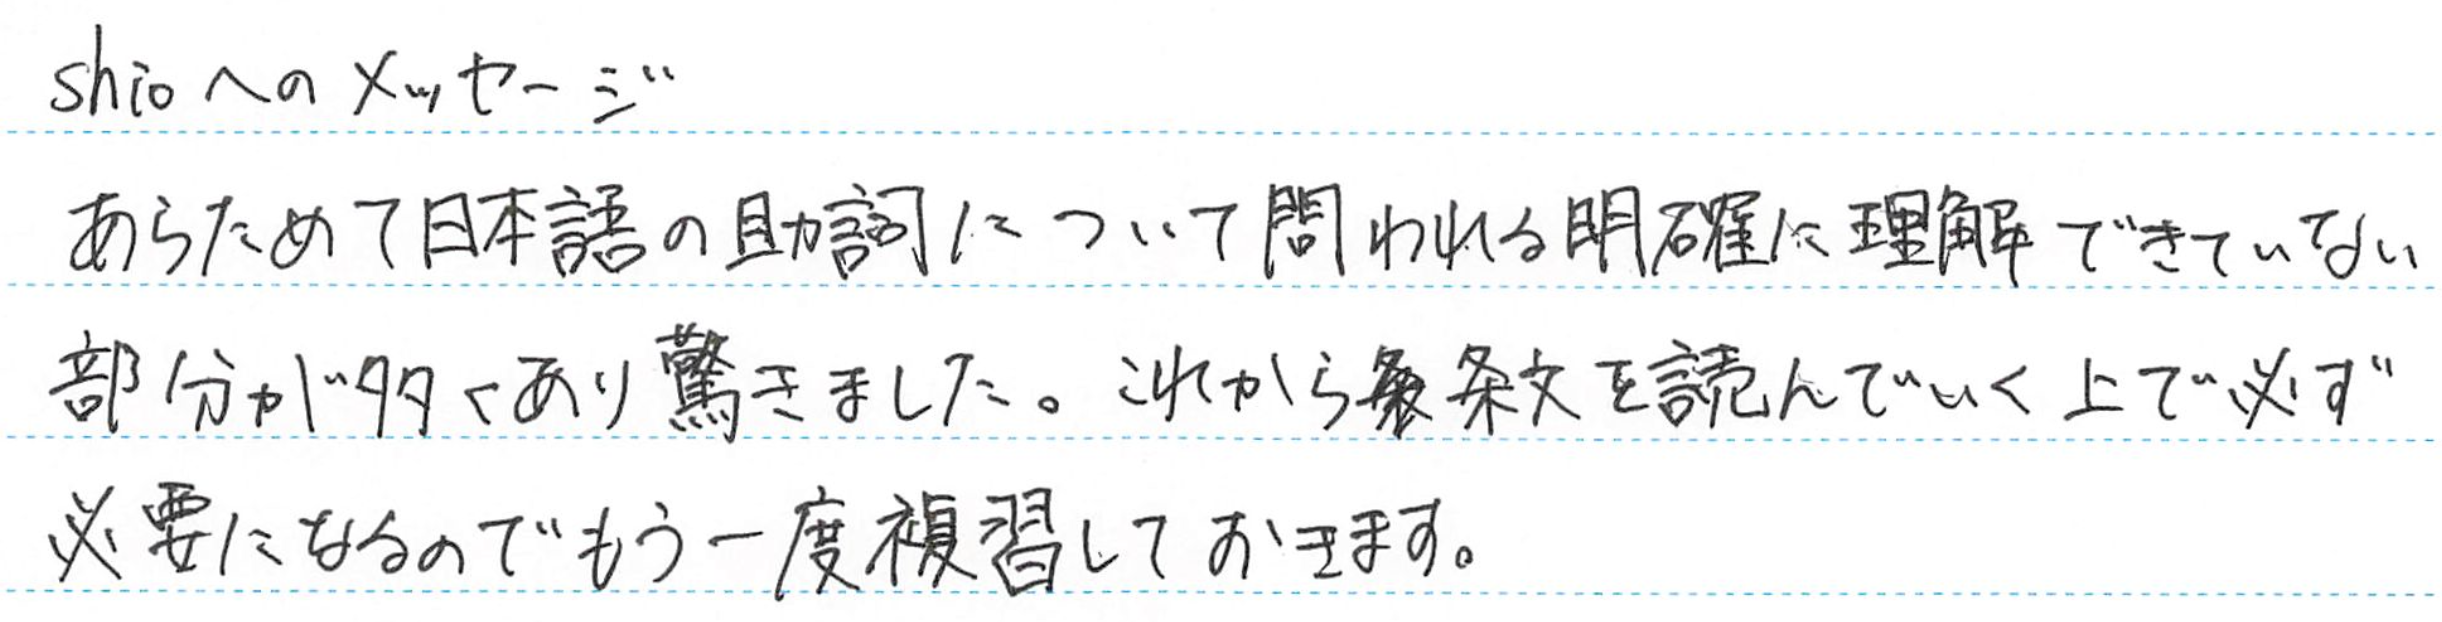 shioへのメッセージ
あらためて日本語の助詞について問われる明確に理解できていない
部分が多くあり驚きました。これから条文を読んでいく上で必ず
必要になるのでもう一度複習しておきます。